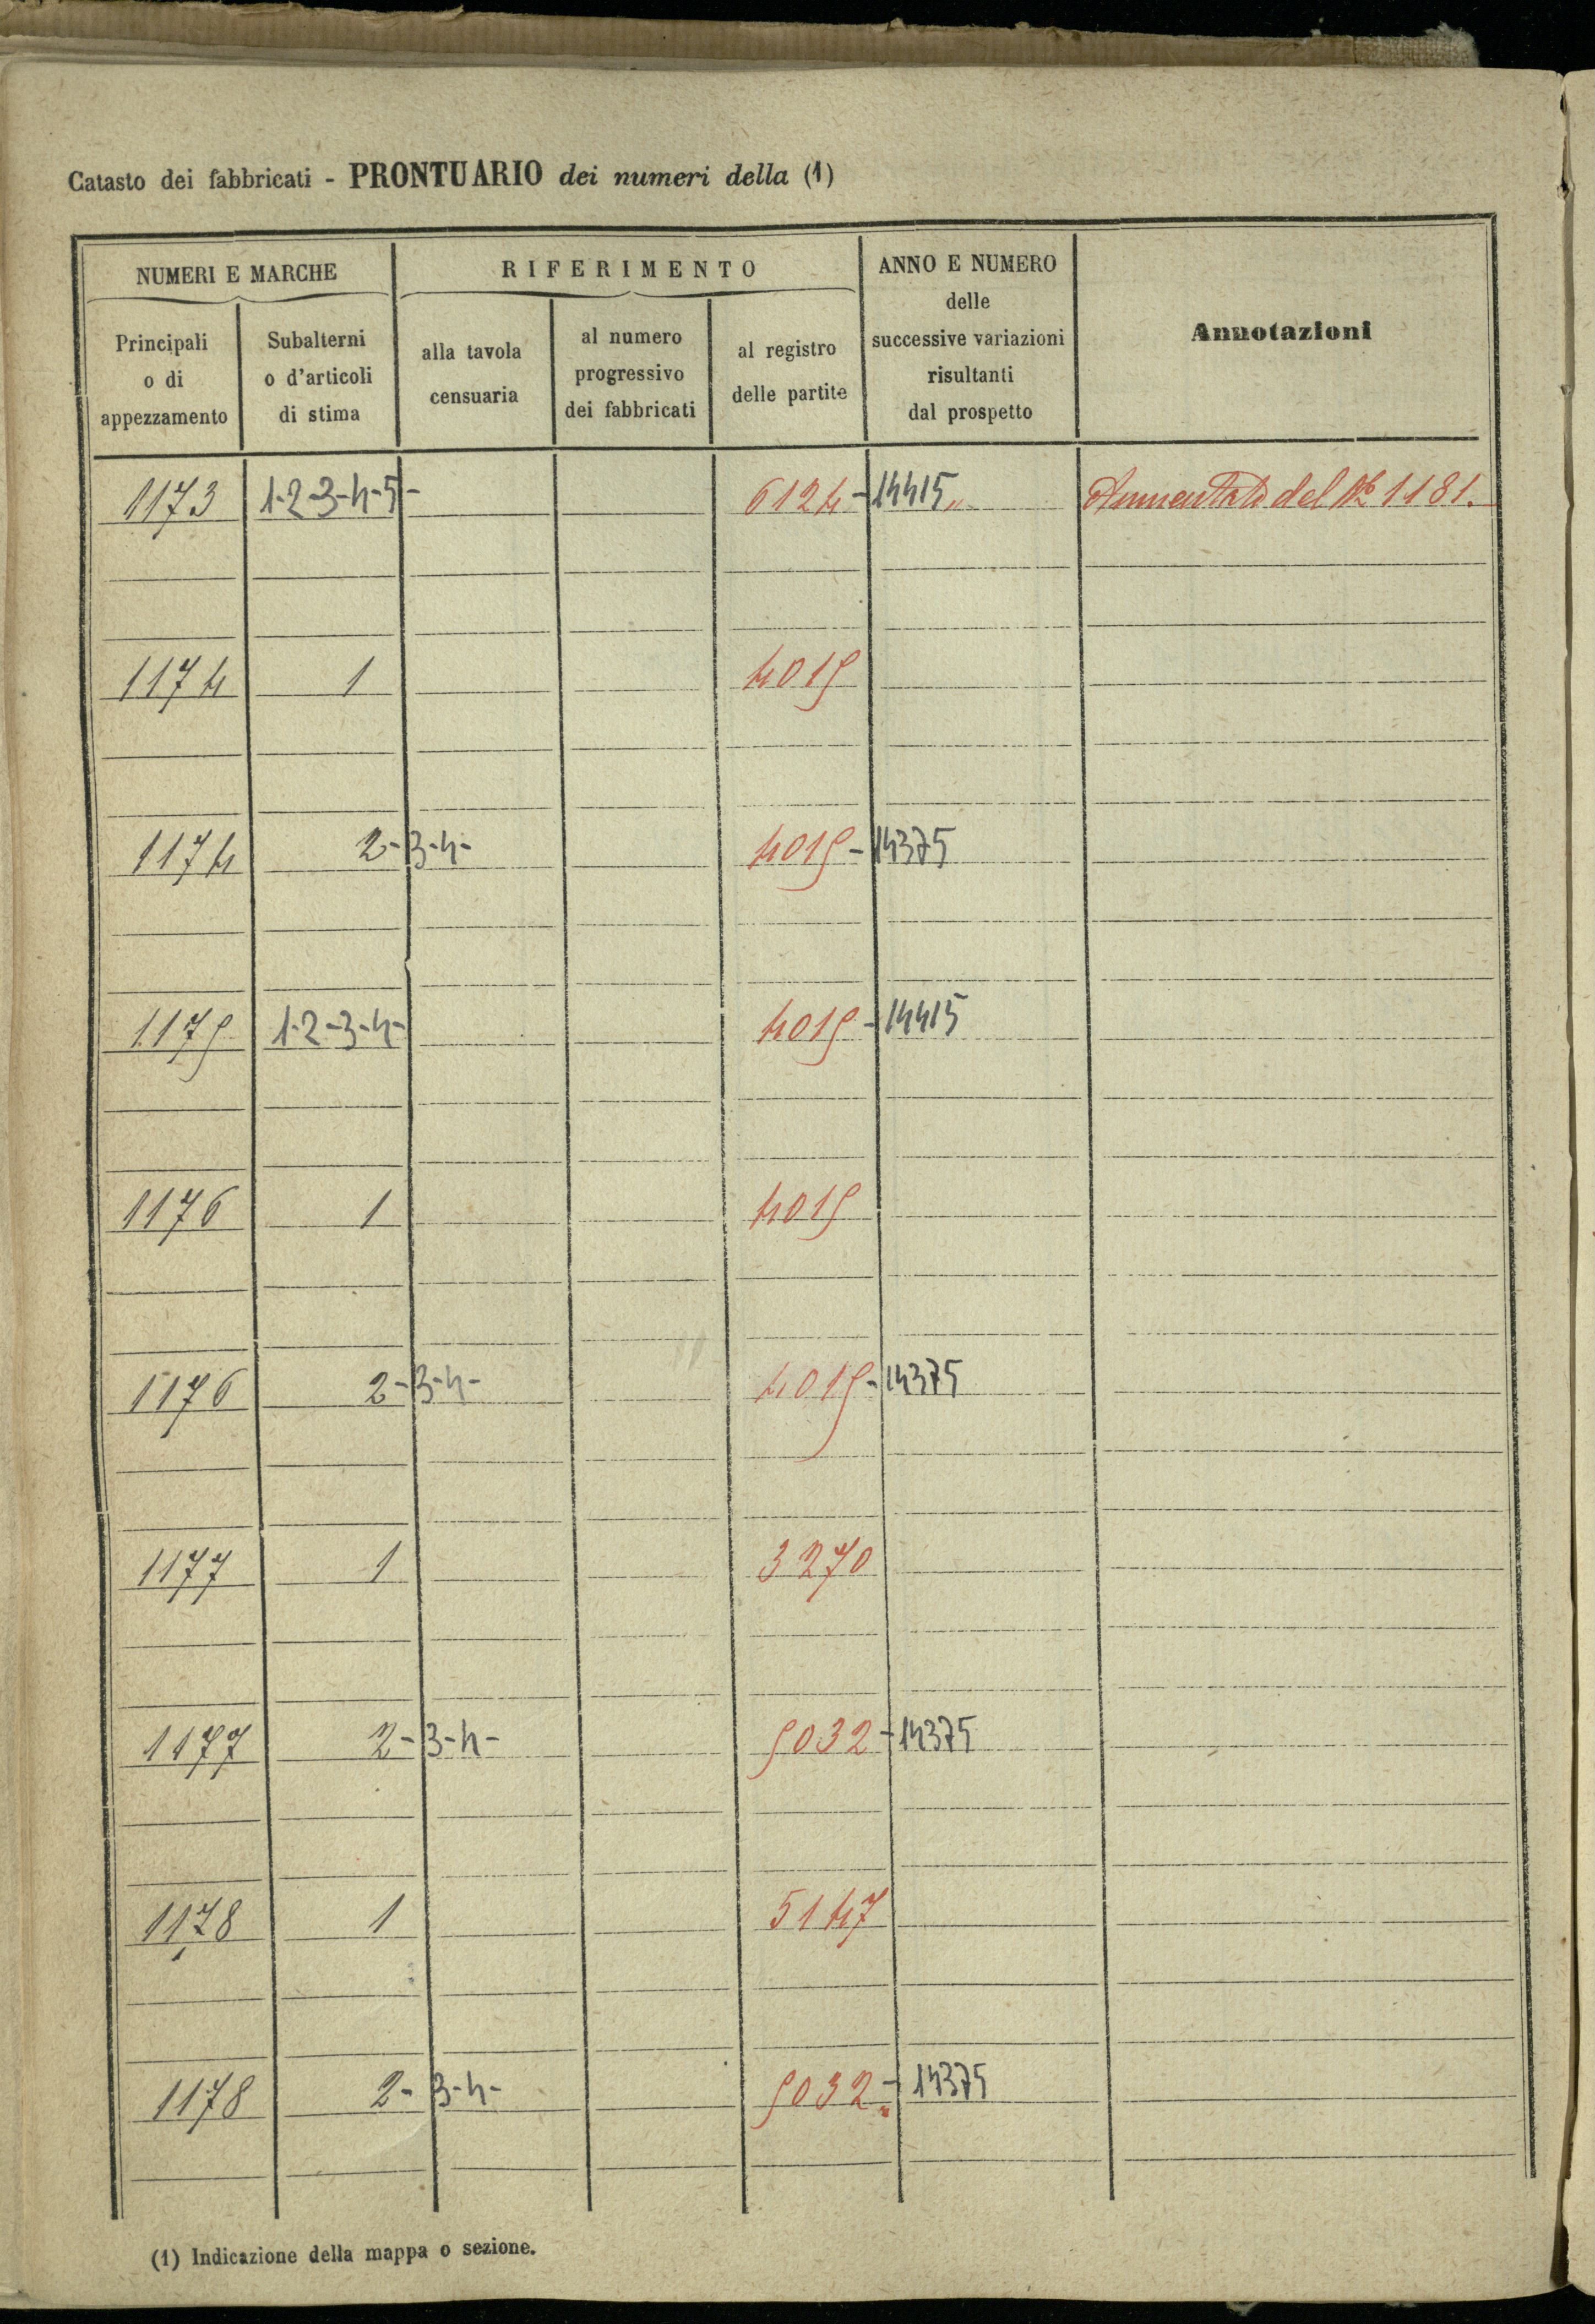 Catasto dei fabbricati - PRONTUARIO dei numeri della (1)
NUMERI E MARCHE
RIFERIMENTO
ANNO E NUMERO
delle
successive variazioni
risultanti
dal prospetto
Annotazioni
Principali
o di
appezzamento
Subalterni
o d'articoli
di stima
alla tavola
censuaria
al numero
progressivo
dei fabbricati
al registro
delle partite
1173 1-2-3-4-5- 6124-14415 „ Aumentato del No 1181.
1174 1 4015
1174 2-3-4- 4015-14375
1175 1-2-3-4- 4015-14415
1176 1 4015
1176 2-3-4- 4015-14375
1177 1 3270
1177 2-3-4- 5032-14375
1178 1 5147
1178 2-3-4- 5032-14375
(1) Indicazione della mappa o sezione.